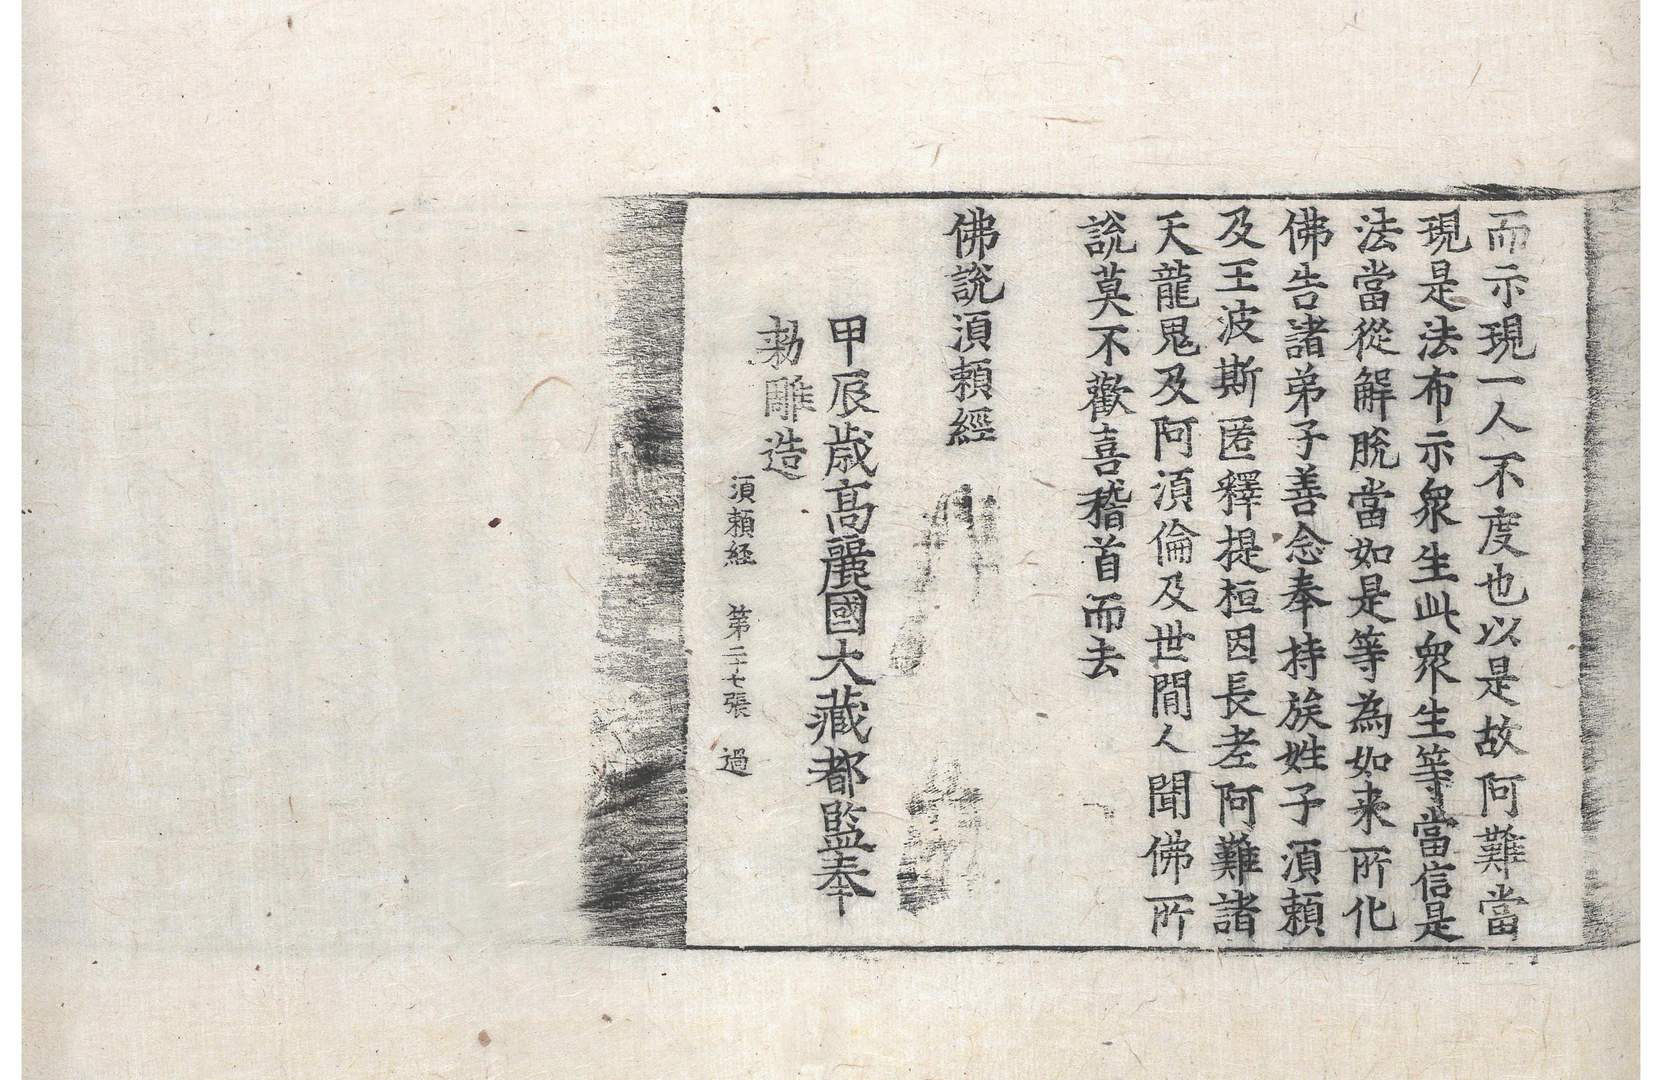 而示現一人不度也以是故阿難當
現是法布示衆生此衆生等當信是
法當從解脫當如是等為如来所化
佛告諸弟子善念奉持族姓子湏頼
及王波斯匿釋提桓因長老阿難諸
天龍鬼及阿湏倫及世閒人聞佛所
說莫不歡喜稽首而去
佛說湏頼經
甲辰歳高麗國大藏都監奉
勅雕造
湏頼経 第二十七張 過